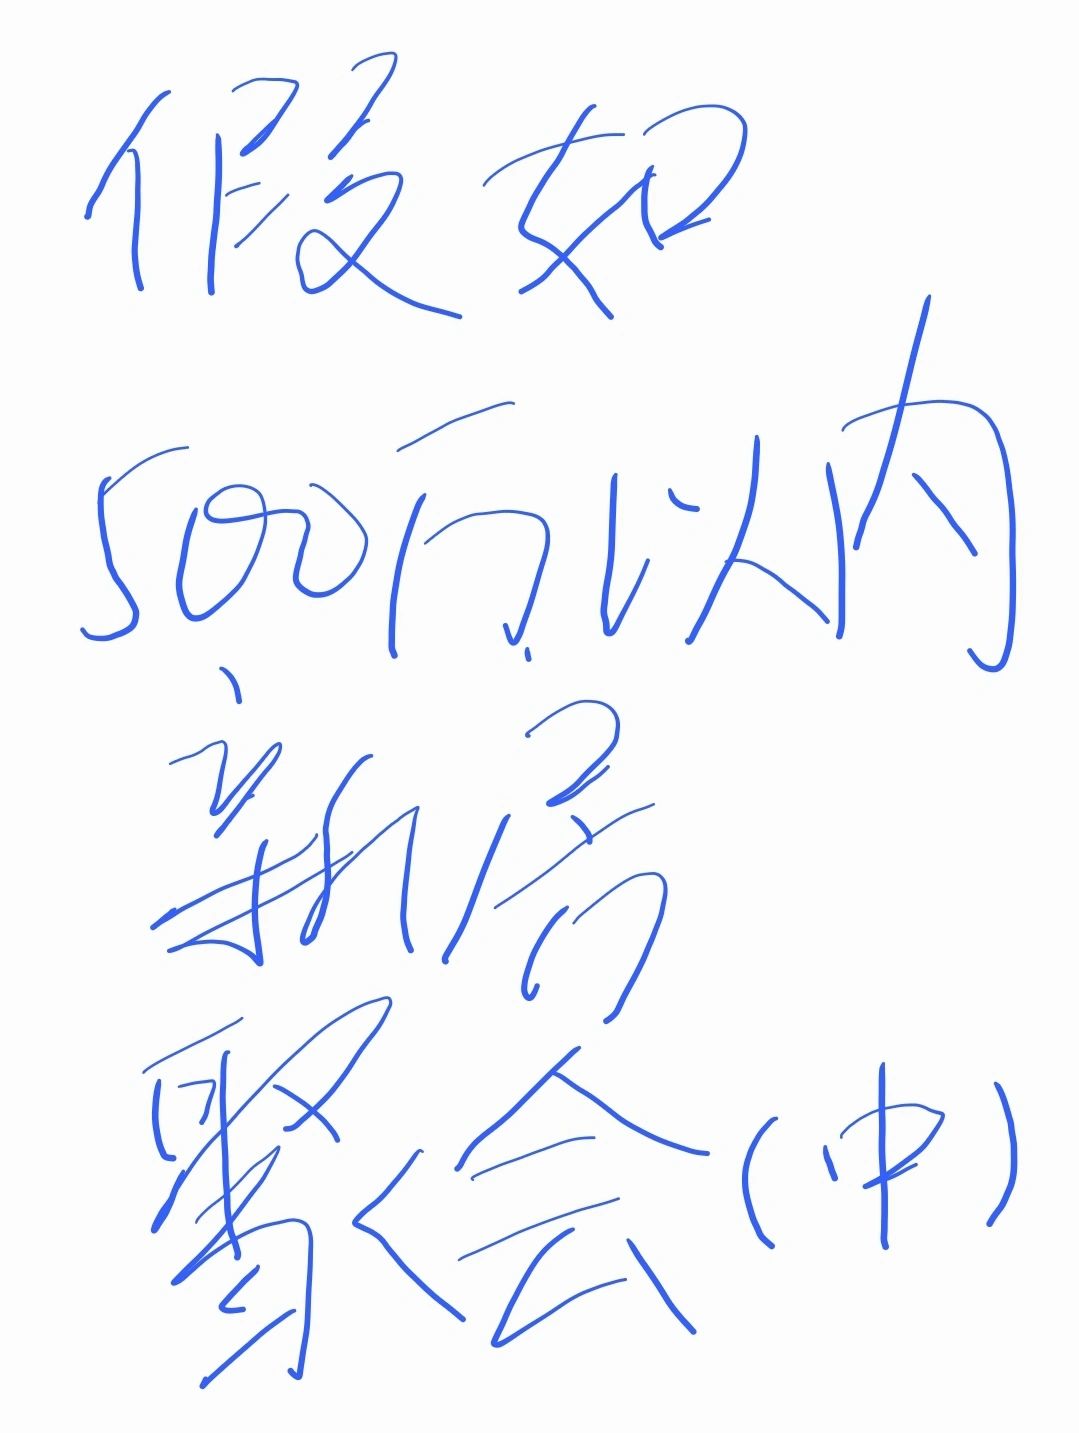 假如
500万以内
新房
聚会(中)